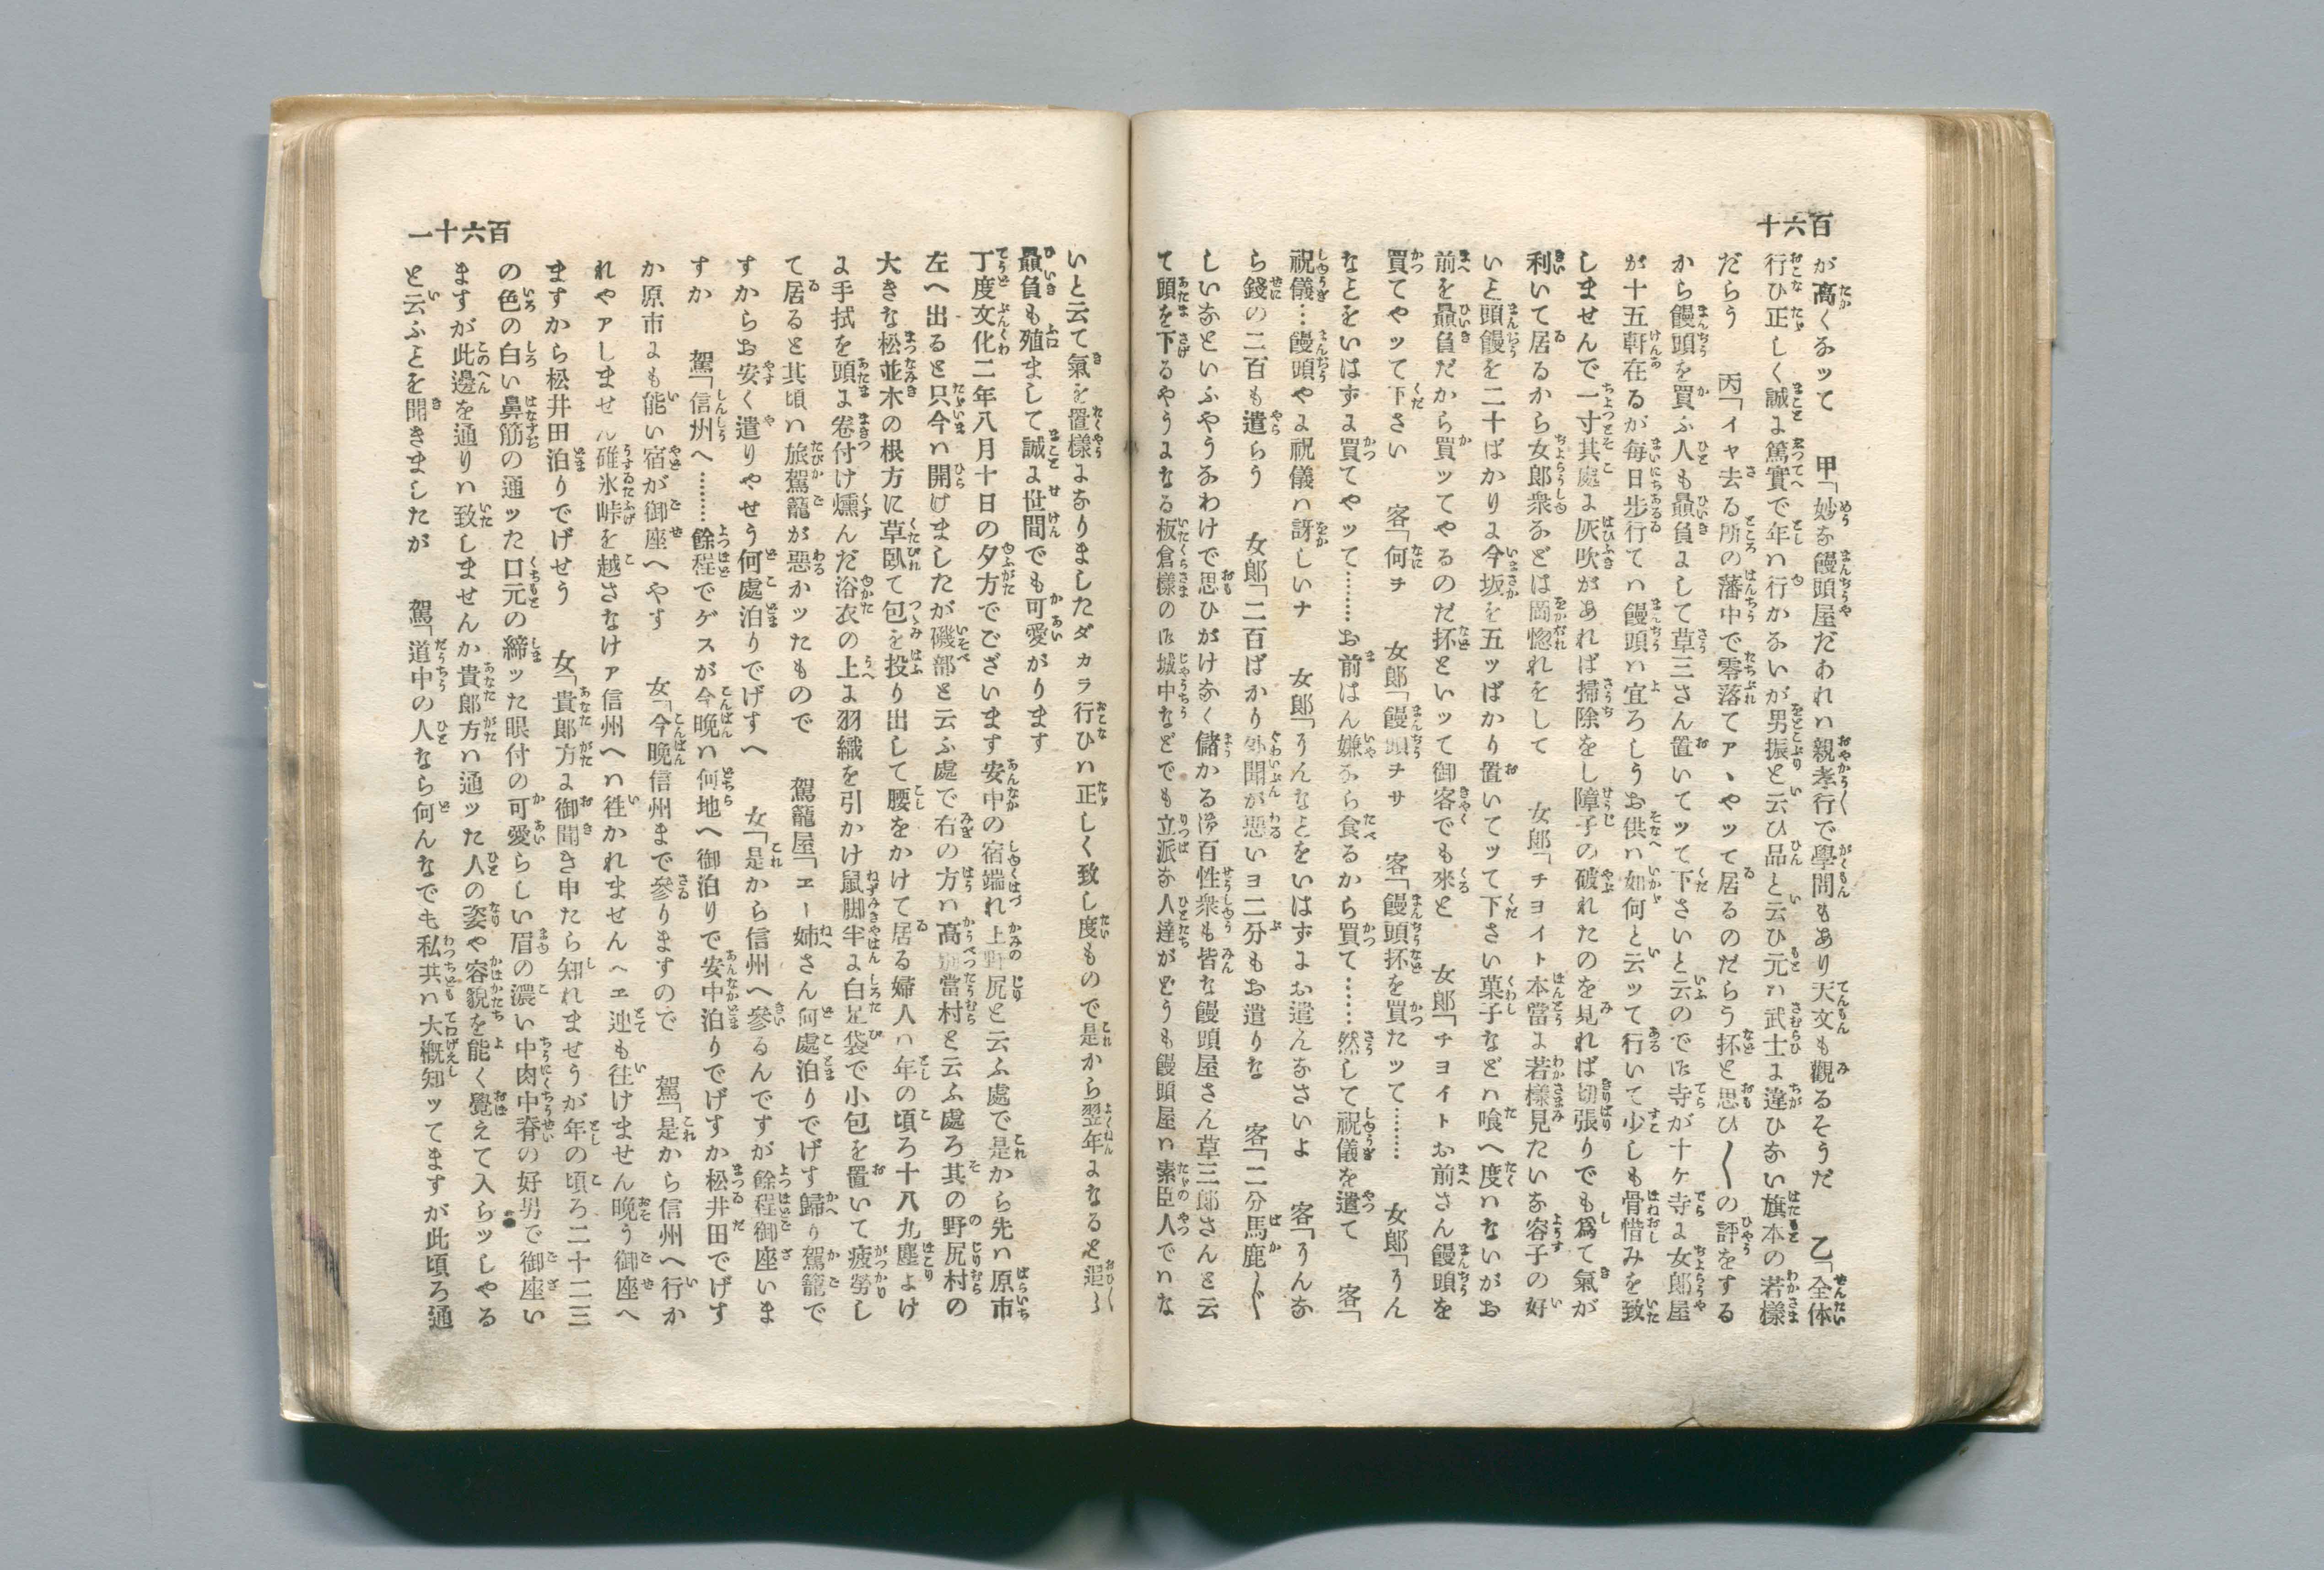 百六十
が高くなッて　甲「妙な饅頭屋だあれハ親孝行で學問もあり天文も觀るそうだ　乙「全体
行ひ正しく誠に篤實で年ハ行かないが男振と云ひ品と云ひ元ハ武士に違ひない旗本の若樣
だらう　丙「イヤ去る所の藩中で零落てアヽやッて居るのだらう抔と思ひ〳〵の評をする
から饅頭を買ふ人も贔負にして草三さん置いてッて下さいと云のでは寺が十ケ寺に女郎屋
が十五軒在るが毎日歩行てハ饅頭ハ宜ろしうお供ハ如何と云ッて行いて少しも骨惜みを致
しませんで一寸其處に灰吹があれば掃除をし障子の破れたのを見れば切張りでも爲て氣が
利いて居るから女郎衆などは岡惚れをして　女郎「チヨイト本當に若樣見たいな容子の好
いと頭饅を二十ばかりに今坂を五ッばかり置いてッて下さい菓子などハ喰へ度ハないがお
前を贔負だから買ッてやるのだ抔といッて御客でも來と　女郎「チヨイトお前さん饅頭を
買てやッて下さい　客「何チ　女郎「饅頭チサ　客「饅頭抔を買たッて………　女郎「うん
なとをいはずに買てやッて………お前はん嫌なら食るから買て……然して祝儀を遣て　客「
祝儀…饅頭やに祝儀ハ訝しいナ　女郎「うんなとをいはずにお遣んなさいよ　客「うんな
ら錢の二百も遣らう　女郎「二百ばかり外聞が惡いヨ二分もお遣りな　客「二分馬鹿〳〵
しいなといふやうなわけで思ひがけなく儲かる故百性衆も皆な饅頭屋さん草三郎さんと云
て頭を下るやうになる板倉樣のは城中などでも立派な人達がどうも饅頭屋ハ素臣人でハな
百六十一
いと云て氣を置樣になりましたダカラ行ひハ正しく致し度もので是から翌年になると追々
贔負も殖まして誠に世間でも可愛がります
丁度文化二年八月十日の夕方でございます安中の宿端れ上野尻と云ふ處で是から先ハ原市
左へ出ると只今ハ開けましたが磯部と云ふ處で右の方ハ高別當村と云ふ處ろ其の野尻村の
大きな松並木の根方に草臥て包を投り出して腰をかけて居る婦人ハ年の頃ろ十八九塵よけ
に手拭を頭に卷付け燻んだ浴衣の上に羽織を引かけ鼠脚半に白足袋で小包を置いて疲勞し
て居ると其頃ハ旅駕籠が惡かッたもので　駕籠屋「ヱー姉さん何處泊りでげす歸り駕籠で
すからお安く遣りやせう何處泊りでげすへ　女「是から信州へ參るんですが餘程御座いま
すか　駕「信州へ………餘程でゲスが今晩ハ何地へ御泊りで安中泊りでげすか松井田でげす
か原市にも能い宿が御座へやす　女「今晩信州まで參りますので　駕「是から信州へ行か
れやァしません碓氷峠を越さなけァ信州へハ徃かれませんヘヱ迚も往けません晩う御座へ
ますから松井田泊りでげせう　女「貴郎方に御聞き申たら知れませうが年の頃ろ二十二三
の色の白い鼻筋の通ッた口元の締ッた眼付の可愛らしい眉の濃い中肉中脊の好男で御座い
ますが此邊を通りハ致しませんか貴郎方ハ通ッた人の姿や容貌を能く覺えて入らッしやる
と云ふとを聞きましたが　駕「道中の人なら何んなでも私共ハ大概知ッてますが此頃ろ通